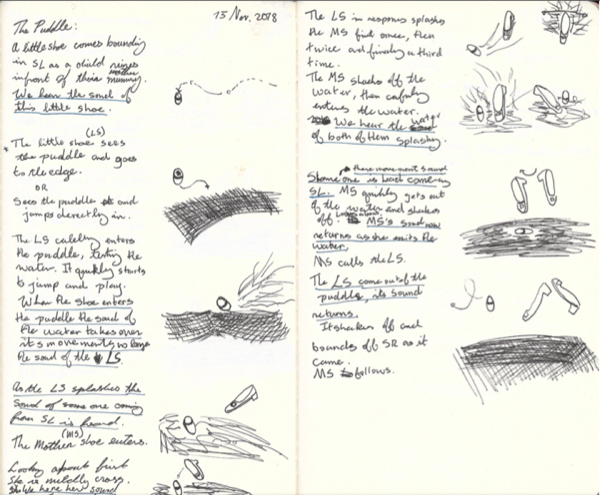 The Puddle:
13 Nov. 2018
A little shoe comes bounding
in SL as a child
infront of their mummy.
mother
We hear the sound of
this little shoe.
(LS)
The little shoe sees
the puddle and goes
to the edge.
OR
Sees the puddle and
jumps directly in.
The LS enters
the puddle, testing the
water. It quickly starts
to jump and play.
When the shoe enters
the puddle the sound of
the water takes over
its movements no longer
the sound of the LS.
As the LS splashes the
sound of some one coming
from SL is heard.
(MS)
The Mother shoe enters.
Looking about first
She is mildly cross.
her sound
The LS in response splashes
the MS first once, then
twice and finally a third
time.
The MS shakes off the
water, then
enters the water.
We hear the water
of both of them splashing.
there movement sound
Some one is heard coming
SL. MS quickly gets out
of the water and shakes
off. MS's sound
returns as she exits the
water.
MS calls the LS.
The LS comes out of the
puddle, its sound
returns.
It shakes off and
bounds off SR as it
came.
MS follows.